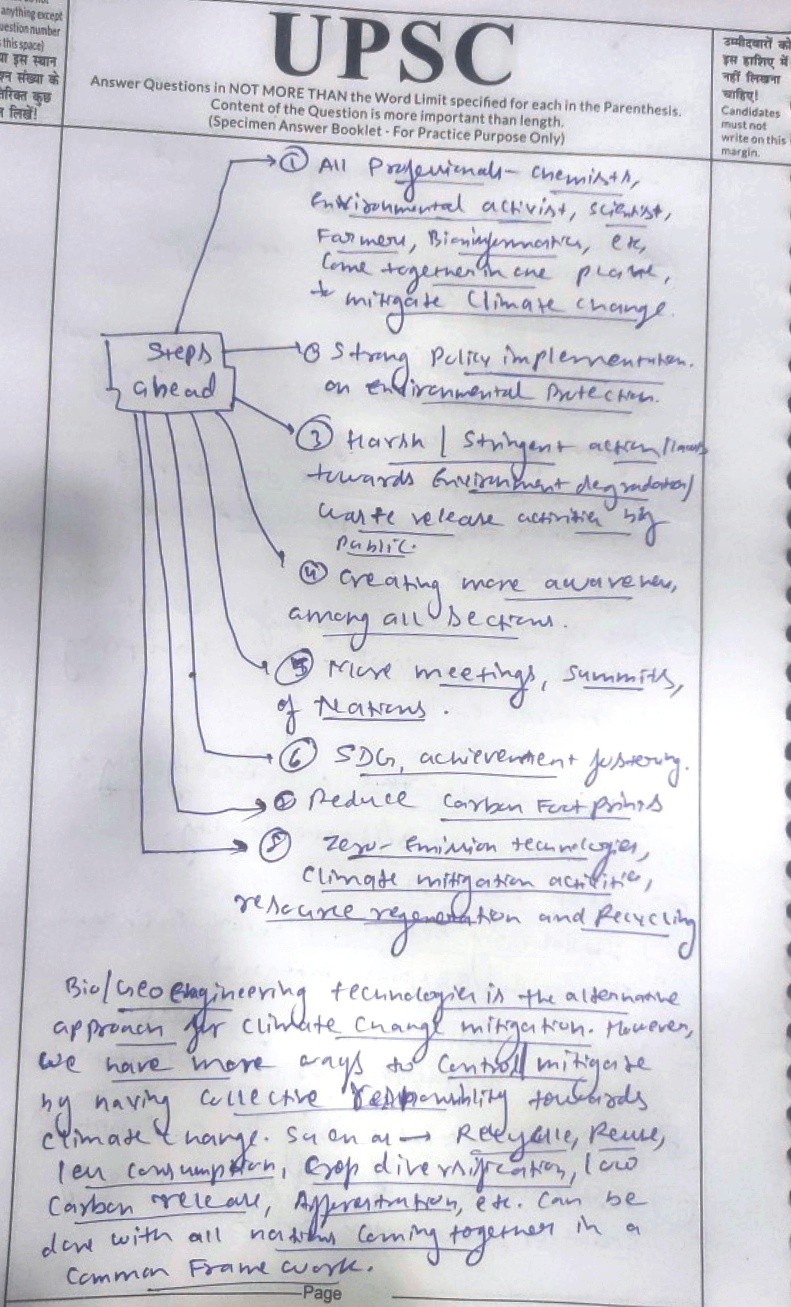 anything except
question number
this space)
या इस स्थान
प्रश्न संख्या के
अतिरिक्त कुछ
न लिखें!
UPSC
Answer Questions in NOT MORE THAN the Word Limit specified for each in the Parenthesis.
Content of the Question is more important than length.
(Specimen Answer Booklet - For Practice Purpose Only)
उम्मीदवारों को
इस हाशिए में
नहीं लिखना
चाहिए!
Candidates
must not
write on this
margin.
Steps
ahead
① All Professionals - Chemists,
Environmental activist, scientist,
Farmers, Bioinformatics, etc,
Come together in one
to mitigate Climate change.
② Strong Policy implementation.
on Environmental Protection.
③ Harsh / Stringent action/laws
towards Environment degradation/
waste release activities by
Public.
④ Creating more awareness,
among all Sections.
⑤ More meetings, Summits,
of Nations.
⑥ SDG, achievement fostering.
Reduce Carbon Foot prints
⑧ Zero-Emission technologies,
Climate mitigation activities,
resource regeneration and Recycling
Bio/Geo engineering technologies is the alternative
approach for Climate Change mitigation. However,
we have more ways to Control/mitigate
by having Collective responsibility towards
Climate Change. Such as → Recycle, Reuse,
less consumption, Crop diversification, low
Carbon release, Afforestation, etc. Can be
done with all nations coming together in a
Common Frame work.
Page